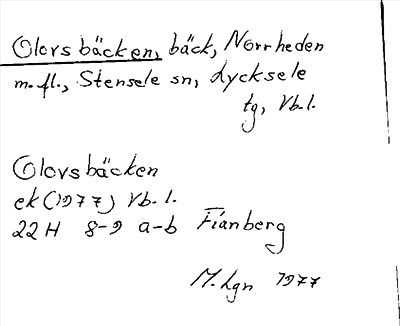 Olovsbäcken, bäck, Norrheden
m.fl., Stensele sn, Lycksele
tg, Vb.l.
Olovsbäcken
ek (1977) Vb.l.
22H 8-9 a-b Fianberg
M. Lgn 1977